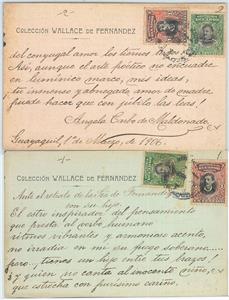 2
COLECCIÓN WALLACE DE FERNANDEZ
del conyugal amor los tiernos
Así, aunque el arte poético no encuadre
en lumínico marco, mis ideas,
tu inmenso y abnegado amor de madre
puede hacer que con júbilo las leas!
Angela Carbo de Maldonado
Guayaquil, 1º de Marzo, de 1906.
1
COLECCIÓN WALLACE DE FERNANDEZ
Ante el retrato de la Sra. de Fernandez
con su hijo.
El estro inspirador del pensamiento
que presta al verbo humano
ritmos vibrantes y armonioso acento,
no irradia en mi su fuego soberano....
pero, tienes un hijo entre tus brazos!
y quien no canta al inocente niño,
que estrecha con purísimo cariño,